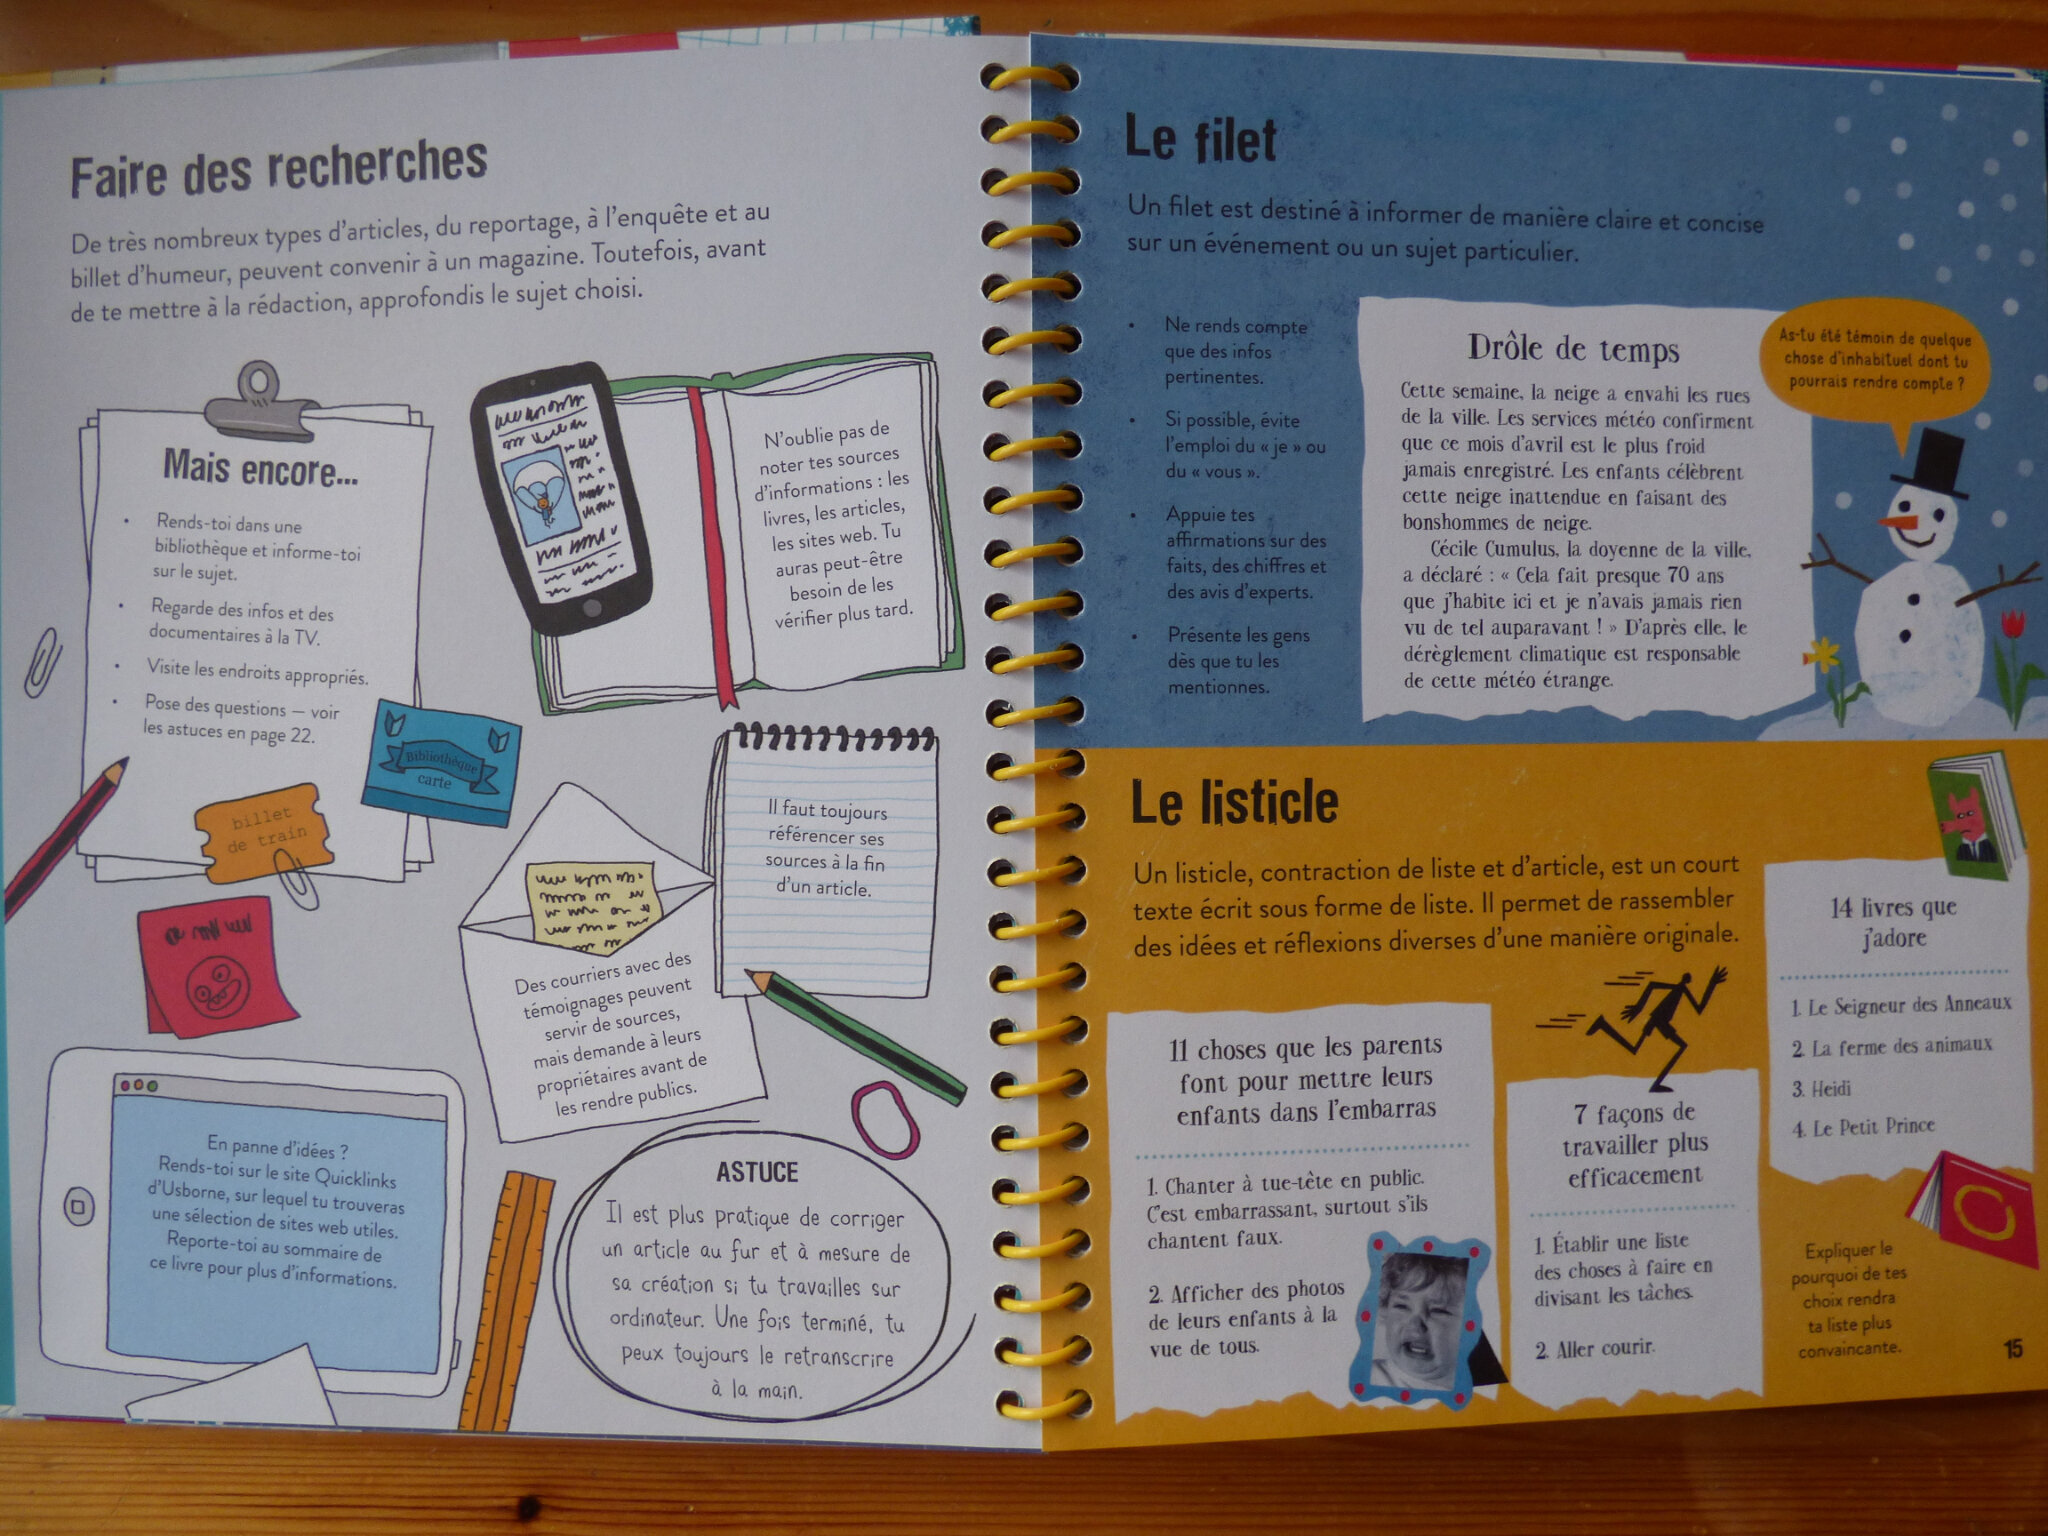 Faire des recherches
De très nombreux types d'articles, du reportage, à l'enquête et au
billet d'humeur, peuvent convenir à un magazine. Toutefois, avant
de te mettre à la rédaction, approfondis le sujet choisi.
Mais encore...
• Rends-toi dans une
bibliothèque et informe-toi
sur le sujet.
• Regarde des infos et des
documentaires à la TV.
• Visite les endroits appropriés.
• Pose des questions — voir
les astuces en page 22.
N'oublie pas de
noter tes sources
d'informations : les
livres, les articles,
les sites web. Tu
auras peut-être
besoin de les
vérifier plus tard.
Bibliothèque
carte
billet
de train
Il faut toujours
référencer ses
sources à la fin
d'un article.
Des courriers avec des
témoignages peuvent
servir de sources,
mais demande à leurs
propriétaires avant de
les rendre publics.
En panne d'idées ?
Rends-toi sur le site Quicklinks
d'Usborne, sur lequel tu trouveras
une sélection de sites web utiles.
Reporte-toi au sommaire de
ce livre pour plus d'informations.
ASTUCE
Il est plus pratique de corriger
un article au fur et à mesure de
sa création si tu travailles sur
ordinateur. Une fois terminé, tu
peux toujours le retranscrire
à la main.
Le filet
Un filet est destiné à informer de manière claire et concise
sur un événement ou un sujet particulier.
• Ne rends compte
que des infos
pertinentes.
• Si possible, évite
l'emploi du « je » ou
du « vous ».
• Appuie tes
affirmations sur des
faits, des chiffres et
des avis d'experts.
• Présente les gens
dès que tu les
mentionnes.
Drôle de temps
Cette semaine, la neige a envahi les rues
de la ville. Les services météo confirment
que ce mois d'avril est le plus froid
jamais enregistré. Les enfants célèbrent
cette neige inattendue en faisant des
bonshommes de neige.
Cécile Cumulus, la doyenne de la ville,
a déclaré : « Cela fait presque 70 ans
que j'habite ici et je n'avais jamais rien
vu de tel auparavant ! » D'après elle, le
dérèglement climatique est responsable
de cette météo étrange.
As-tu été témoin de quelque
chose d'inhabituel dont tu
pourrais rendre compte ?
Le listicle
Un listicle, contraction de liste et d'article, est un court
texte écrit sous forme de liste. Il permet de rassembler
des idées et réflexions diverses d'une manière originale.
11 choses que les parents
font pour mettre leurs
enfants dans l'embarras
1. Chanter à tue-tête en public.
C'est embarrassant, surtout s'ils
chantent faux.
2. Afficher des photos
de leurs enfants à la
vue de tous.
7 façons de
travailler plus
efficacement
1. Établir une liste
des choses à faire en
divisant les tâches.
2. Aller courir.
14 livres que
j'adore
1. Le Seigneur des Anneaux
2. La ferme des animaux
3. Heidi
4. Le Petit Prince
Expliquer le
pourquoi de tes
choix rendra
ta liste plus
convaincante.
15